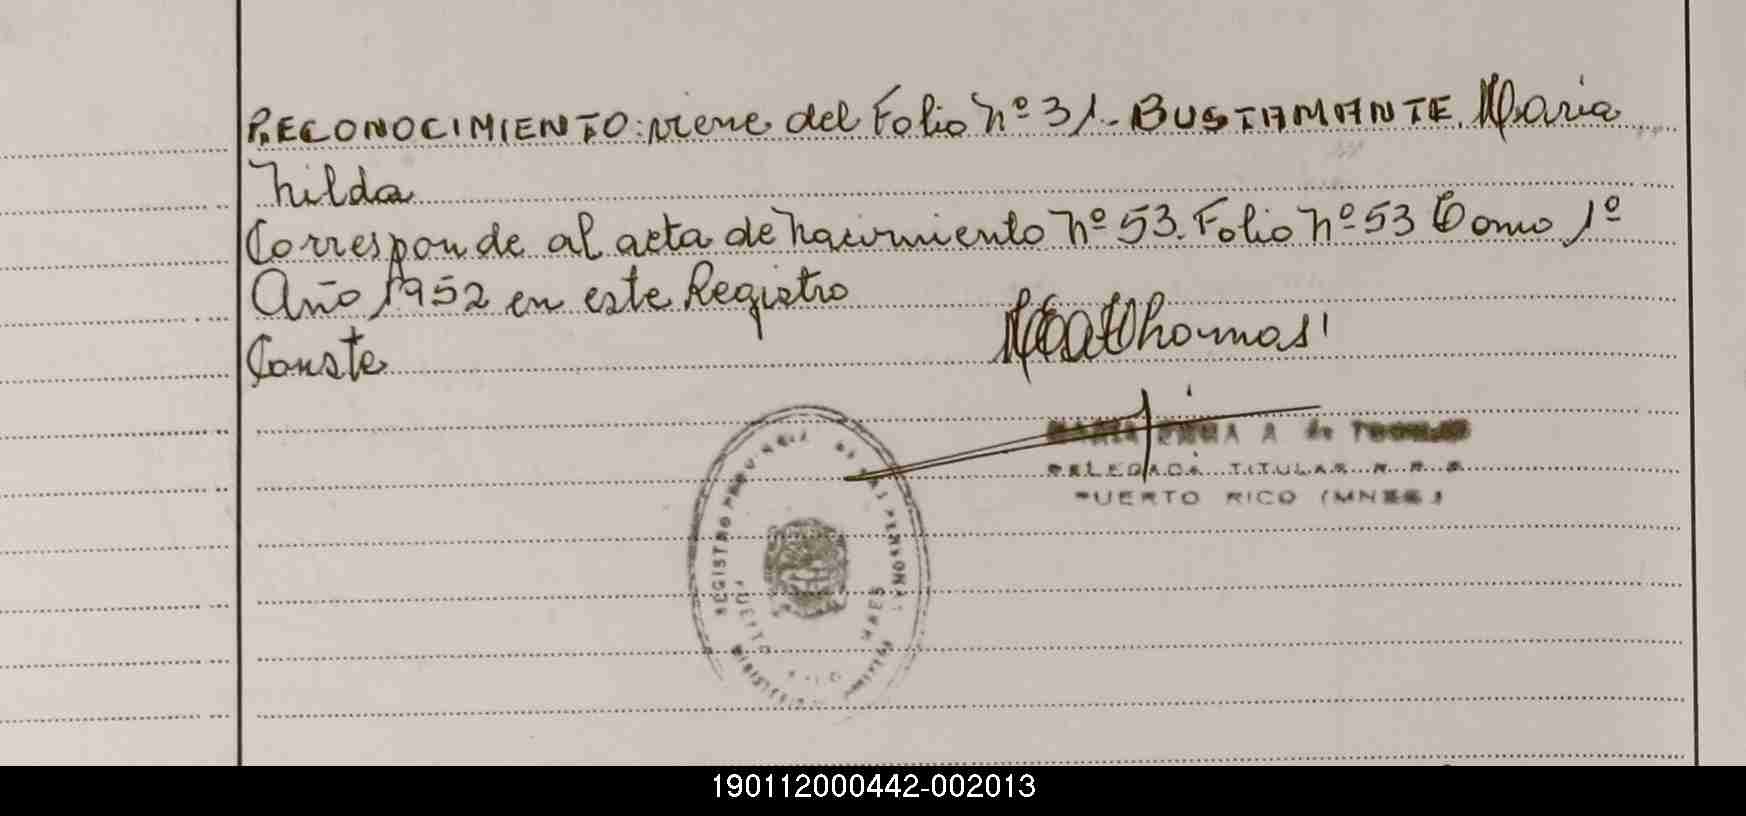 RECONOCIMIENTO: viene del Folio Nº 31.- BUSTAMANTE Maria
Nilda
Corresponde al acta de Nacimiento Nº 53. Folio Nº 53 Tomo 1º
Año 1952 en este Registro
Conste
A de
DELEGADA TITULAR
PUERTO RICO (MNES)
REGISTRO PROVINCIAL DE LAS PERSONAS
190112000442-002013